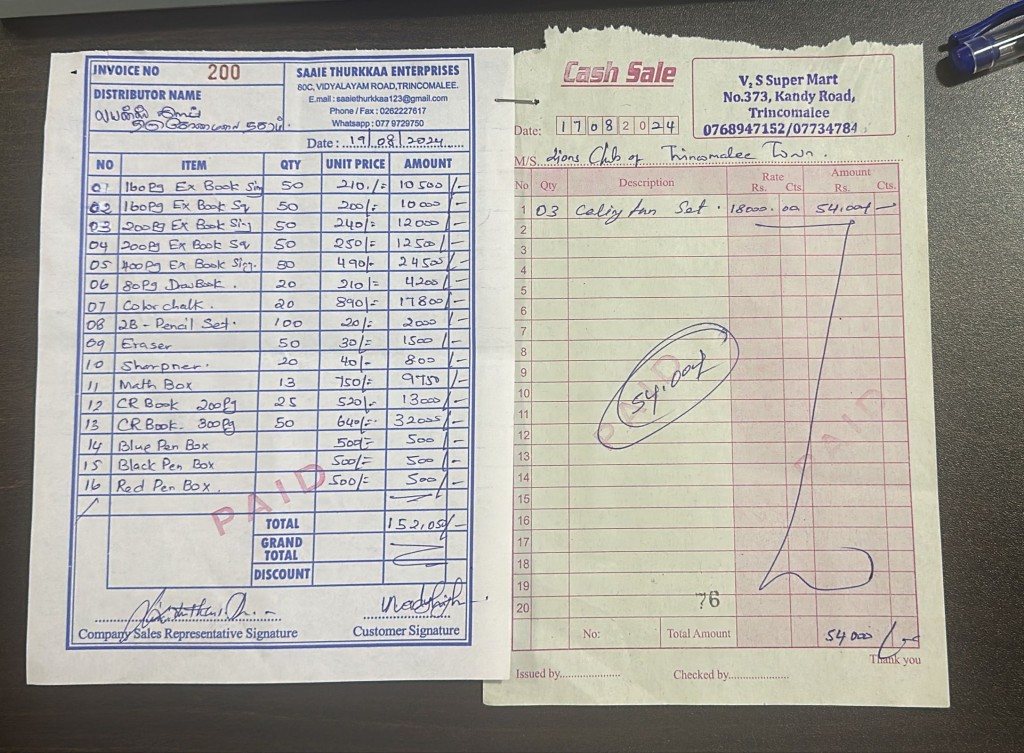 INVOICE NO 200
DISTRIBUTOR NAME
SAAIE THURKKAA ENTERPRISES
80C, VIDYALAYAM ROAD,TRINCOMALEE.
E.mail : saaiethurkkaa123@gmail.com
Phone / Fax : 0262227617
Whatsapp : 077 9729750
லயன்ஸ்
Date : 19/08/2024
NO ITEM QTY UNIT PRICE AMOUNT
01 160Pg Ex Book Sin 50 210/= 10500/-
02 160Pg Ex Book Sq 50 200/= 10000/-
03 200Pg Ex Book Sin 50 240/= 12000/-
04 200Pg Ex Book Sq 50 250/= 12500/-
05 400Pg Ex Book Sig. 50 490/- 24500/-
06 80Pg DrawBook. 20 210/= 4200/-
07 Color chalk. 20 890/= 17800/-
08 2B - Pencil Set. 100 20/= 2000/-
09 Eraser 50 30/= 1500/-
10 Sharpner. 20 40/- 800/-
11 Math Box 13 750/= 9750/-
12 CR Book 200Pg 25 520/- 13000/-
13 CR Book. 300Pg 50 640/= 32000/-
14 Blue Pen Box 500/= 500/-
15 Black Pen Box 500/= 500/-
16 Red Pen Box. 500/= 500/-
PAID
TOTAL 152,050/-
GRAND TOTAL
DISCOUNT
Company Sales Representative Signature Customer Signature
Cash Sale
V, S Super Mart
No.373, Kandy Road,
Trincomalee
0768947152/07734784
Date: 17 08 2024
M/S. Lions Club of Trincomalee Town.
No Qty Description Rate Rs. Cts. Amount Rs. Cts.
1 03 Celing fan Set. 18000.00 54,000/-
2
3
4
5
6
7
8
9
10
11
12
13
14
15
16
17
18
19
20
54,000/
PAID
PAID
76
No: Total Amount 54000/-
Thank you
Issued by..................... Checked by.....................